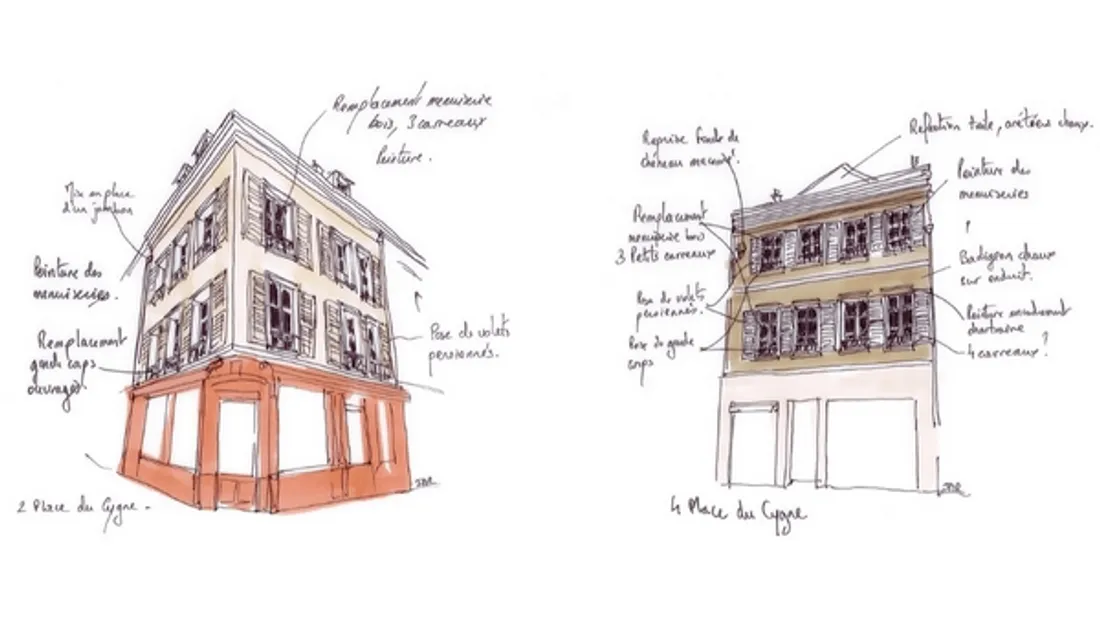 Remplacement menuiserie
bois, 3 carreaux
Peinture.
Mise en place
d'un
Peinture des
menuiseries.
Remplacement
garde corps
ouvragés.
Pose de volets
persiennés.
2 Place du Cygne.
JDR
Reprise
Réfection toile, arêtiers chaux.
Peinture des
menuiseries
?
Remplacement
menuiserie bois
3 Petits carreaux
Badigeon chaux
sur enduit.
Pose de volets
persiennés.
Peinture encadrement
Pose de garde
corps
4 carreaux ?
4 Place du Cygne
JDR